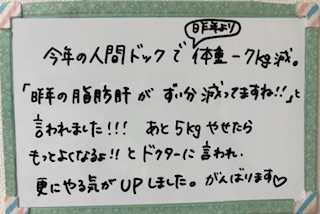 昨年より
今年の人間ドックで体重-7kg減。
「昨年の脂肪肝がずい分減ってますね!!」と
言われました!!! あと5kgやせたら
もっとよくなるよ!!とドクターに言われ、
更にやる気がUPしました。がんばります♡